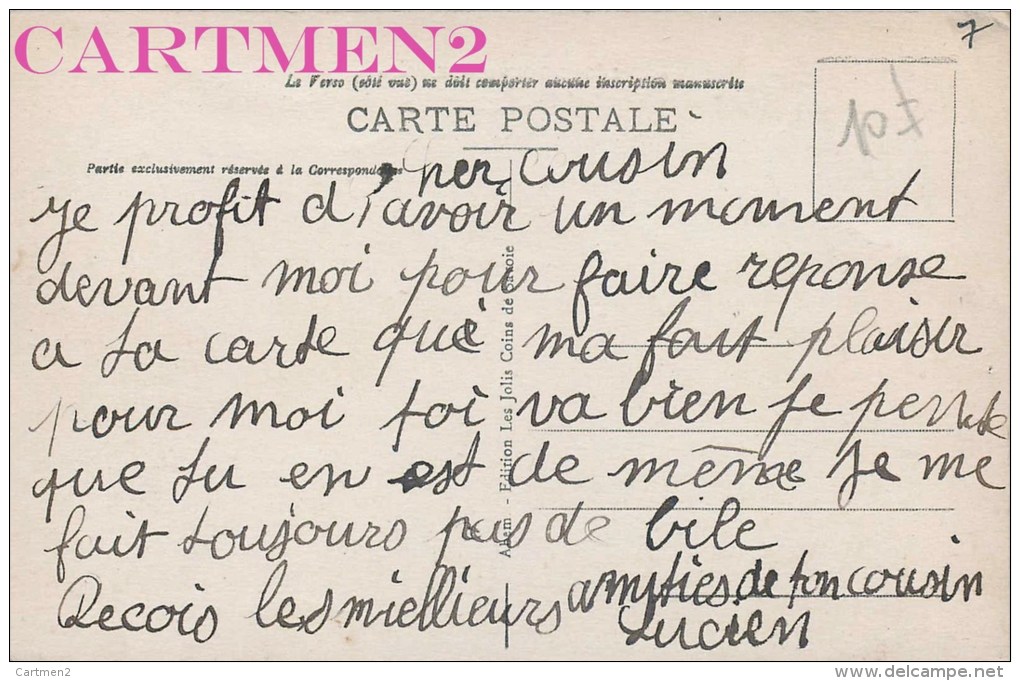 CARTMEN2
7
Le Verso (côté vue) ne doit comporter aucune inscription manuscrite
CARTE POSTALE
10F
Partie exclusivement réservée à la Correspondance
Cher Cousin
Je profit d'avoir un moment
devant moi pour faire reponse
a ta carte qui ma fait plaisir
pour moi toi va bien je pense
que tu en est de même Je me
fait toujours pas de bile
Recois les miellieurs amities de ton cousin
Lucien
Edition Les Jolis Coins de Savoie
Cartmen2
www.delcampe.net